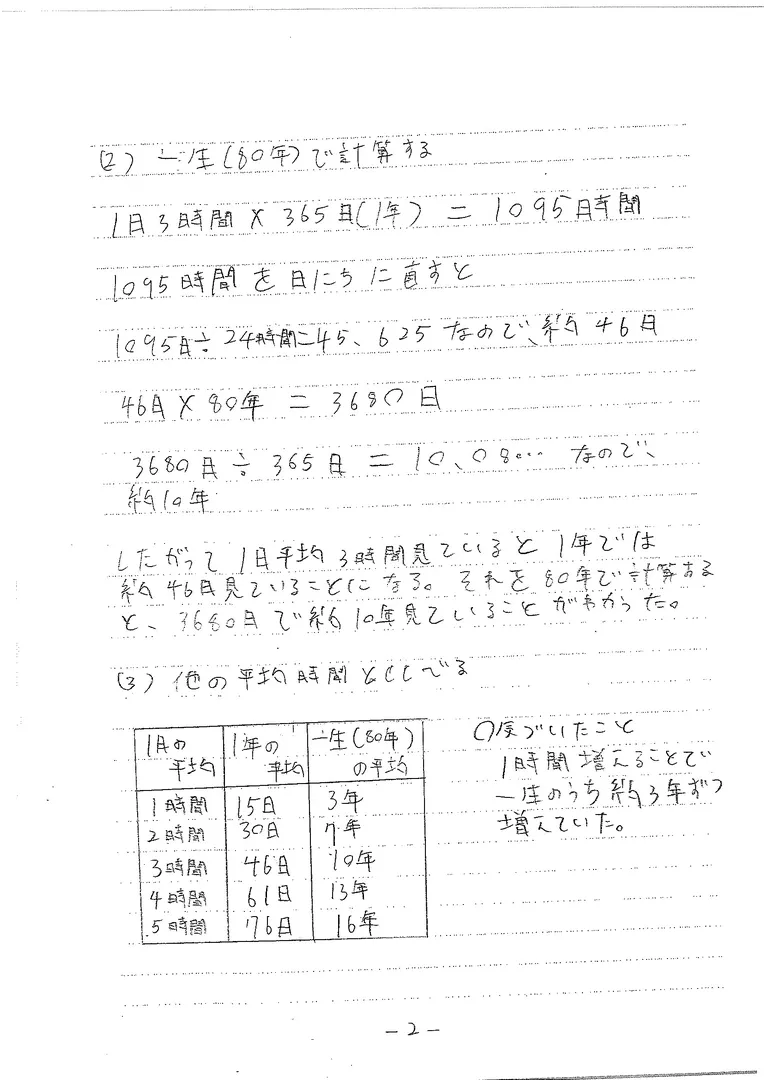 (2) 一生(80年)で計算する
1日3時間×365日(1年)＝1095時間
1095時間を日にちに直すと
1095日÷24時間＝45、625なので、約46日
46日×80年＝3680日
3680日÷365日＝10、08…なので、
約10年
したがって1日平均3時間見ていると1年では
約46日見ていることになる。それを80年で計算する
と、3680日で約10年見ていることがわかった。
(3) 他の平均時間とくらべる
1日の平均 1年の平均 一生(80年)の平均
1時間 15日 3年
2時間 30日 7年
3時間 46日 10年
4時間 61日 13年
5時間 76日 16年
○気づいたこと
1時間増えることで
一生のうち約3年ずつ
増えていた。
－2－